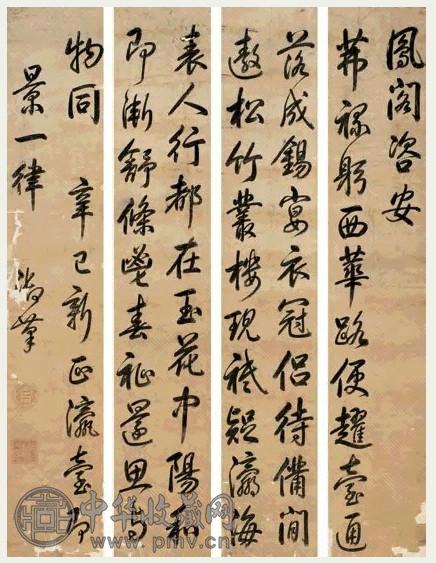 鳳閣咨安
茀祿躬西華路便趯臺通
落成錫宴衣冠侶待備閒
遨松竹叢樓現祗疑瀛海
表人行都在玉花中陽和
即漸舒條鬯春祉還思萬
物同 辛巳新正瀛臺即
景一律 御筆
中华收藏网
www.pmv.cn